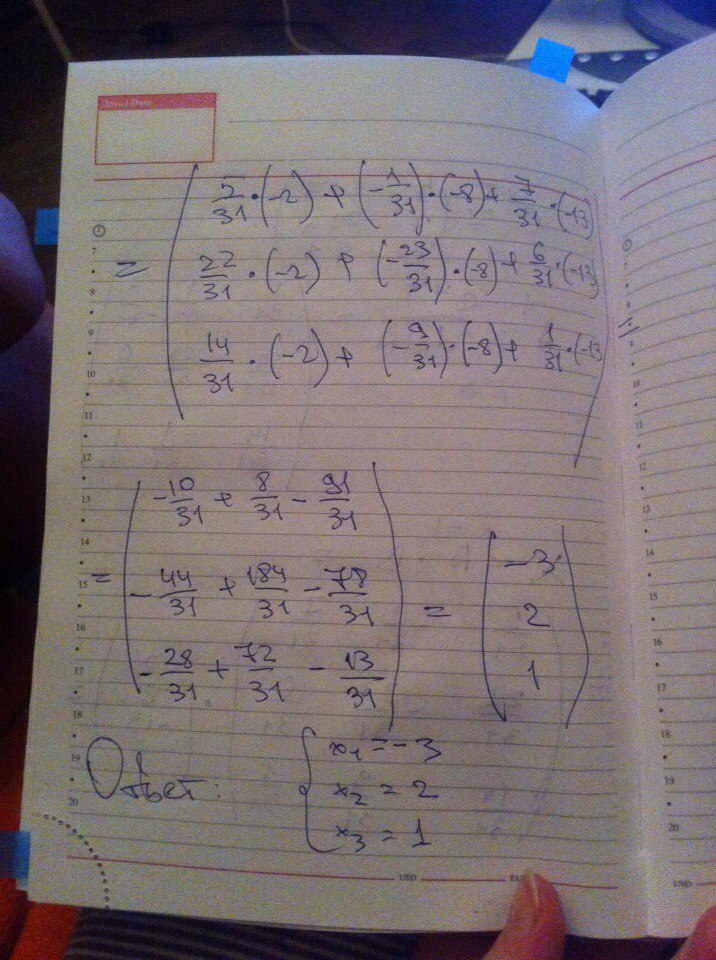 Data / Date
= ( 5/31 · (-2) + (-1/31) · (-8) + 7/31 · (-13)
22/31 · (-2) + (-23/31) · (-8) + 6/31 · (-13)
14/31 · (-2) + (-9/31) · (-8) + 1/31 · (-13 )
= ( -10/31 + 8/31 - 91/31
-44/31 + 184/31 - 78/31
-28/31 + 72/31 - 13/31 ) = ( -3
2
1 )
Ответ: { x₁ = -3
x₂ = 2
x₃ = 1
7
8
9
10
11
12
13
14
15
16
17
18
19
20
USD